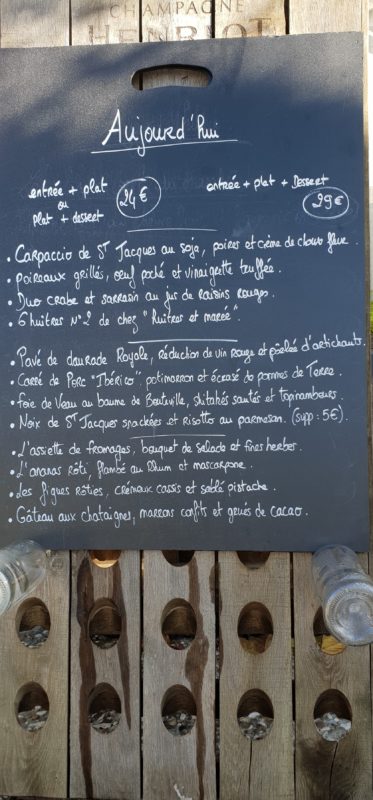 CHAMPAGNE
HENRIOT
Aujourd'hui
entrée + plat
ou
plat + dessert
24€
entrée + plat + Dessert
29€
• Carpaccio de St Jacques au soja, poires et crème de chou fleur.
• Poireaux grillés, oeuf poché et vinaigrette truffée.
• Duo crabe et sarrasin au jus de raisins rouges.
• 6 huitres n°2 de chez "Huitres et marée".
• Pavé de daurade Royale, réduction de vin rouge et poêlée d'artichauts.
• Carré de Porc "Ibérico", potimarron et écrasé de pommes de Terre.
• Foie de Veau au baume de Bouteville, shitakés sautés et topinambours.
• Noix de St Jacques snackées et risotto au parmesan. (supp: 5€).
• L'assiette de fromages, bouquet de salade et fines herbes.
• L'ananas rôti, flambé au Rhum et mascarpone.
• Les figues rôties, crémeux cassis et sablé pistache.
• Gâteau aux chataignes, marrons confits et grués de cacao.